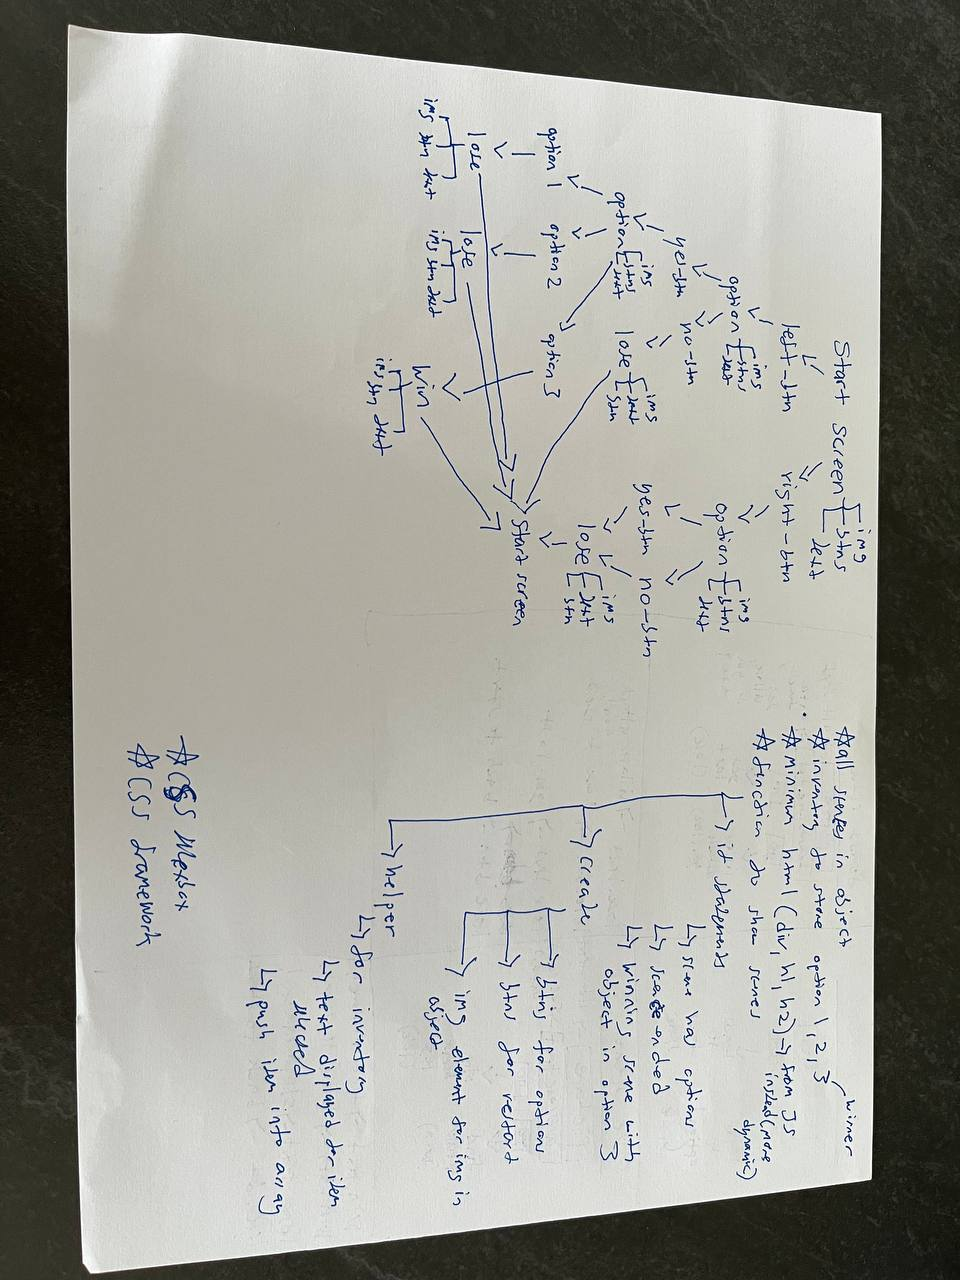 Start screen [ img
btns
text
left-btn
right-btn
option [ img
btns
text
option [ img
btns
text
yes-btn
no-btn
yes-btn
no-btn
option [ img
btns
text
lose [ img
text
btn
lose [ img
text
btn
option 1
option 2
option 3
lose
lose
Win
img btn text
img btn text
img btn text
Start screen
☆ all scenes in object
☆ inventory to store option 1, 2, 3
winner
☆ minimum html (div, h1, h2) → from JS
instead (more
dynamic)
☆ function to show scenes
↳ if statements
↳ scene has options
↳ scene ended
↳ winning scene with
object in option 3
↳ create
↳ btns for options
↳ btns for restart
↳ img element for img in
object
↳ helper
↳ for inventory
↳ text displayed for item
↳ push item into array
☆ CSS flexbox
☆ CSS framework